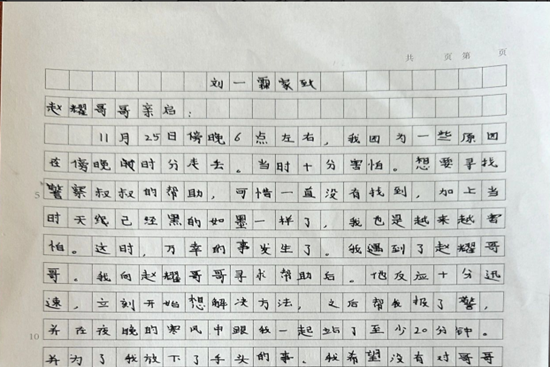 共 页 第 页
刘一霸家致
赵耀哥哥亲启:
11月25日傍晚6点左右,我因为一些原因
在傍晚时分走丢。当时十分害怕。想要寻找
5 警察叔叔的帮助,可惜一直没有找到,加上当
时天线已经黑的如墨一样了,我也是越来越害
怕。这时,万幸的事发生了。我遇到了赵耀哥
哥。我向赵耀哥哥寻求帮助后。他反应十分迅
速,立刻开始想解决方法,之后帮我报了警,
10 并在夜晚的寒风中跟我一起站了至少20分钟。
并为了我放下了手头的事。我希望没有对哥哥